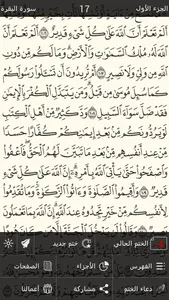 الجزء الأول 17 سورة البقرة
أَلَمْ تَعْلَمْ أَنَّ اللَّهَ عَلَىٰ كُلِّ شَيْءٍ قَدِيرٌ
أَلَمْ تَعْلَمْ أَنَّ اللَّهَ لَهُ مُلْكُ السَّمَاوَاتِ وَالْأَرْضِ وَمَا لَكُم مِّن دُونِ
اللَّهِ مِن وَلِيٍّ وَلَا نَصِيرٍ ١٠٧ أَمْ تُرِيدُونَ أَن تَسْأَلُوا رَسُولَكُمْ
كَمَا سُئِلَ مُوسَىٰ مِن قَبْلُ وَمَن يَتَبَدَّلِ الْكُفْرَ بِالْإِيمَانِ
فَقَدْ ضَلَّ سَوَاءَ السَّبِيلِ ١٠٨ وَدَّ كَثِيرٌ مِّنْ أَهْلِ
الْكِتَابِ لَوْ يَرُدُّونَكُم مِّن بَعْدِ إِيمَانِكُمْ كُفَّارًا حَسَدًا مِّنْ
عِندِ أَنفُسِهِم مِّن بَعْدِ مَا تَبَيَّنَ لَهُمُ الْحَقُّ فَاعْفُوا
وَاصْفَحُوا حَتَّىٰ يَأْتِيَ اللَّهُ بِأَمْرِهِ إِنَّ اللَّهَ عَلَىٰ كُلِّ شَيْءٍ
قَدِيرٌ ١٠٩ وَأَقِيمُوا الصَّلَاةَ وَآتُوا الزَّكَاةَ وَمَا تُقَدِّمُوا لِأَنفُسِكُم
مِّنْ خَيْرٍ تَجِدُوهُ عِندَ اللَّهِ إِنَّ اللَّهَ بِمَا تَعْمَلُونَ
الختم الحالي ختم جديد
الفهرس الأجزاء الصفحات
دعاء الختم مشاركة أعمالنا